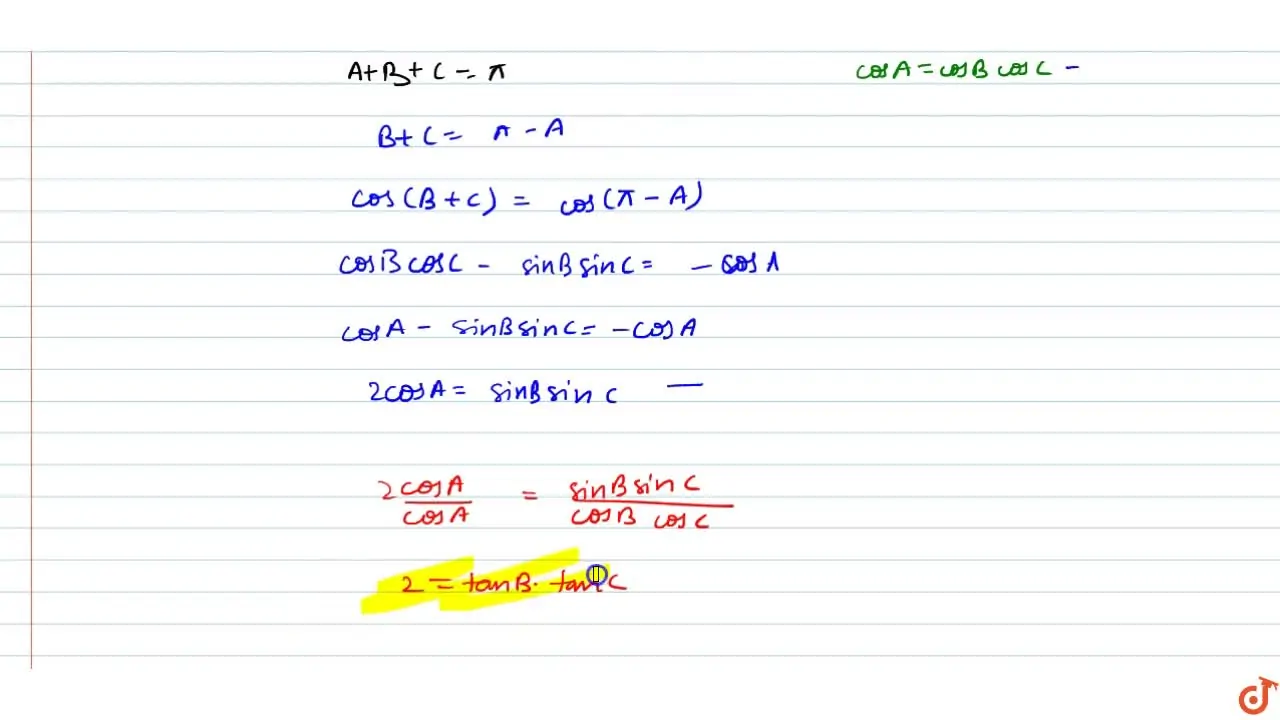 A+B+C = π
cosA = cosB cosC -
B+C = π - A
cos(B+C) = cos(π - A)
cosB cosC - sinB sinC = - cosA
cosA - sinB sinC = - cosA
2cosA = sinB sin C —
2cosA/cosA = sinB sin C/cosB cosC
2 = tanB. tan C